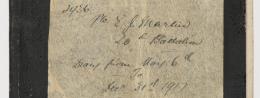 No E. J. Martin
20th Battalion
Diary from May 6th
To
31st 1917